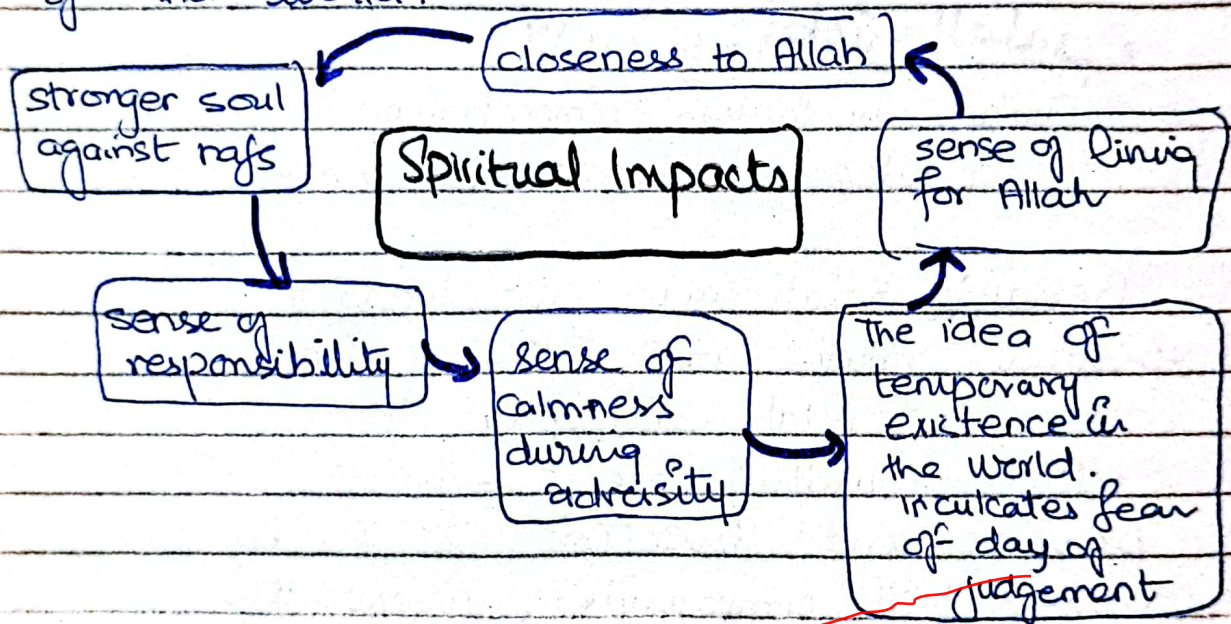 of the
closeness to Allah
stronger soul
against nafs
Spiritual Impacts
sense of living
for Allah
sense of
responsibility
sense of
calmness
during
adversity
The idea of
temporary
existence in
the world.
inculcates fear
of day of
judgement